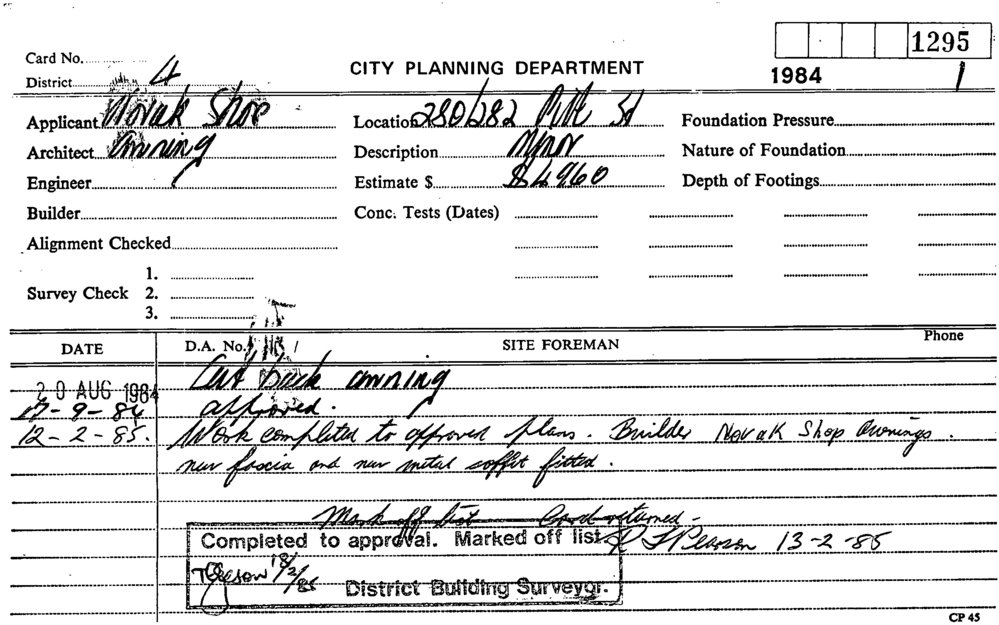 1295
Card No.
CITY PLANNING DEPARTMENT
1984 1
District 4
Applicant Novak Shop Location 280/282 Pitt St Foundation Pressure
Architect Awning Description Minor Nature of Foundation
Engineer Estimate $ $4960 Depth of Footings
Builder Conc. Tests (Dates)
Alignment Checked
1.
Survey Check 2.
3.
DATE D.A. No. SITE FOREMAN Phone
20 AUG 1984 Cut back awning
17-9-84 approved.
12-2-85. Work completed to approved plans. Builder Novak Shop Awnings.
new fascia and new metal soffit fitted.
Mark off list Card returned -
Completed to approval. Marked off list R J Pearson 13-2-85
18/2/85 District Building Surveyor.
CP 45